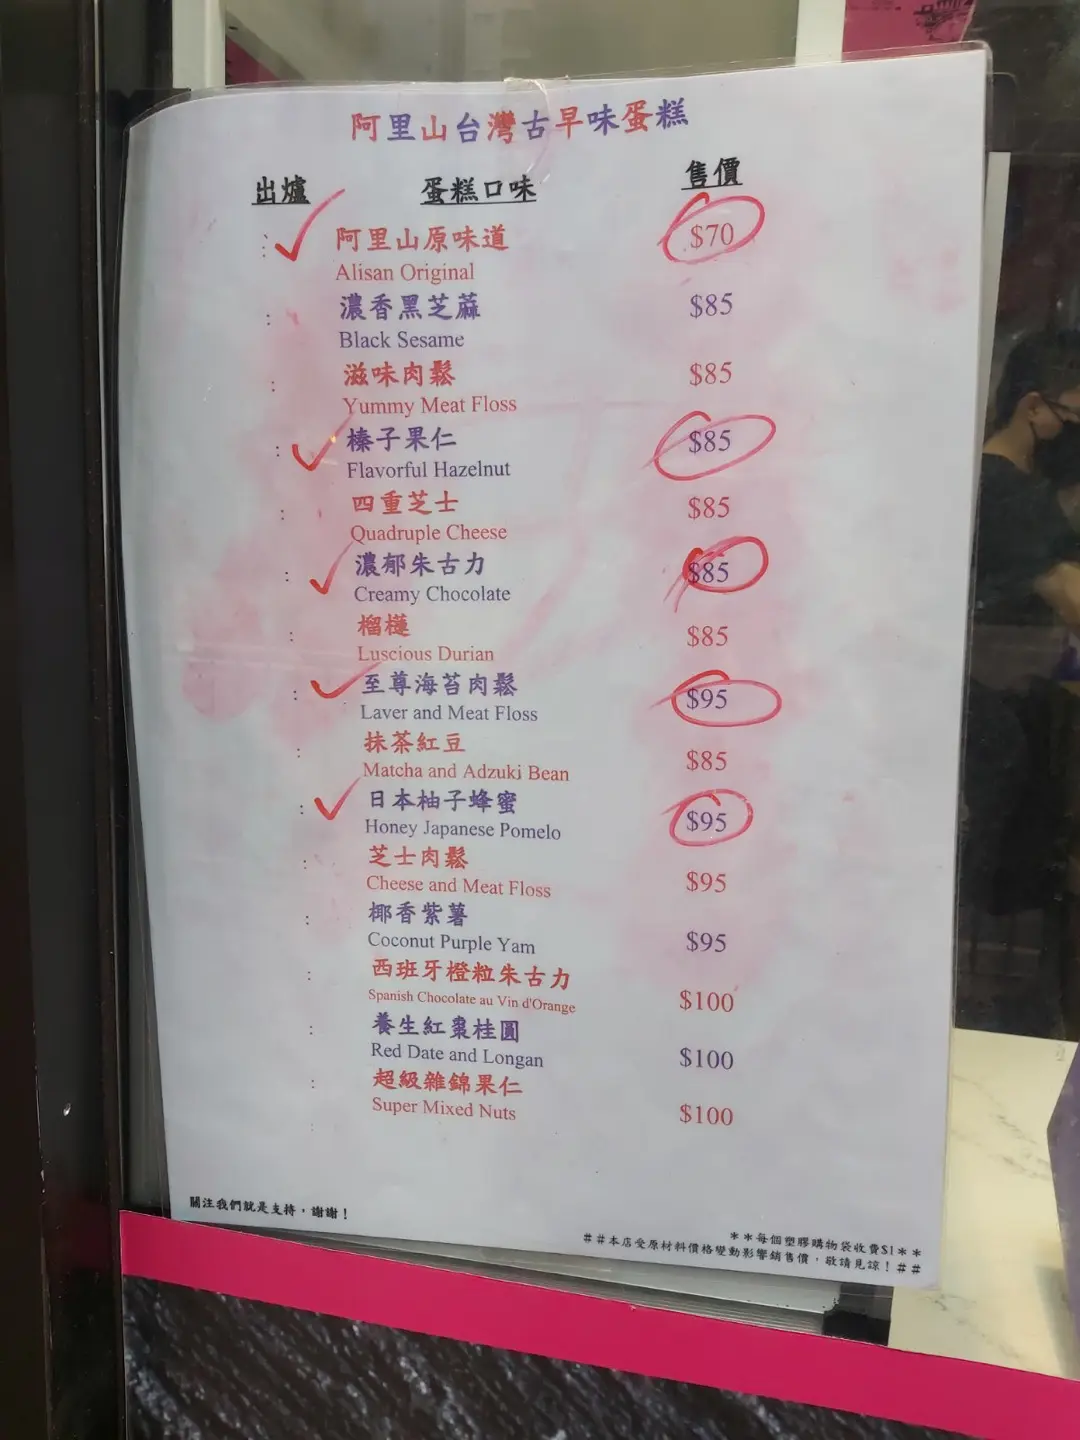 阿里山台灣古早味蛋糕
出爐 蛋糕口味 售價
: 阿里山原味道 $70
Alisan Original
: 濃香黑芝蔴 $85
Black Sesame
: 滋味肉鬆 $85
Yummy Meat Floss
: 榛子果仁 $85
Flavorful Hazelnut
: 四重芝士 $85
Quadruple Cheese
: 濃郁朱古力 $85
Creamy Chocolate
: 榴槤 $85
Luscious Durian
: 至尊海苔肉鬆 $95
Laver and Meat Floss
: 抹茶紅豆 $85
Matcha and Adzuki Bean
: 日本柚子蜂蜜 $95
Honey Japanese Pomelo
: 芝士肉鬆 $95
Cheese and Meat Floss
: 椰香紫薯 $95
Coconut Purple Yam
: 西班牙橙粒朱古力 $100
Spanish Chocolate au Vin d'Orange
: 養生紅棗桂圓 $100
Red Date and Longan
: 超級雜錦果仁 $100
Super Mixed Nuts
關注我們就是支持，謝謝！
**每個塑膠購物袋收費$1**
##本店受原材料價格變動影響銷售價，敬請見諒！##